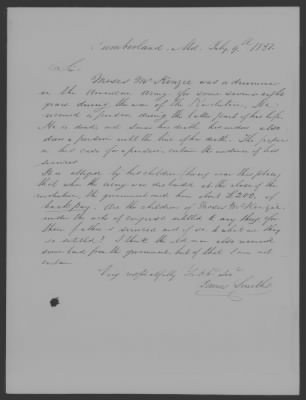 Cumberland, Md. July 9th 1851.
Sir.
Moses McKenzie was a drummer
in the American Army for some seven or eight
years during the war of the Revolution, He
received a pension during the latter part of his life.
He is dead, and since his death, his widow also
drew a pension until the time of her death. The papers
in his case for a pension contain the evidence of his
services
It is alleged by his children (living near this place)
that when the army was disbanded at the close of the
revolution, the government owed him about $200, of
back pay. Are the children of Moses McKenzie
under the acts of congress entitled to any thing for
their father's services and if so to what are they
so entitled? I think the old man also received
some land from the government but of that I am not
certain
Very respectfully Yr Obt Servt
Smith